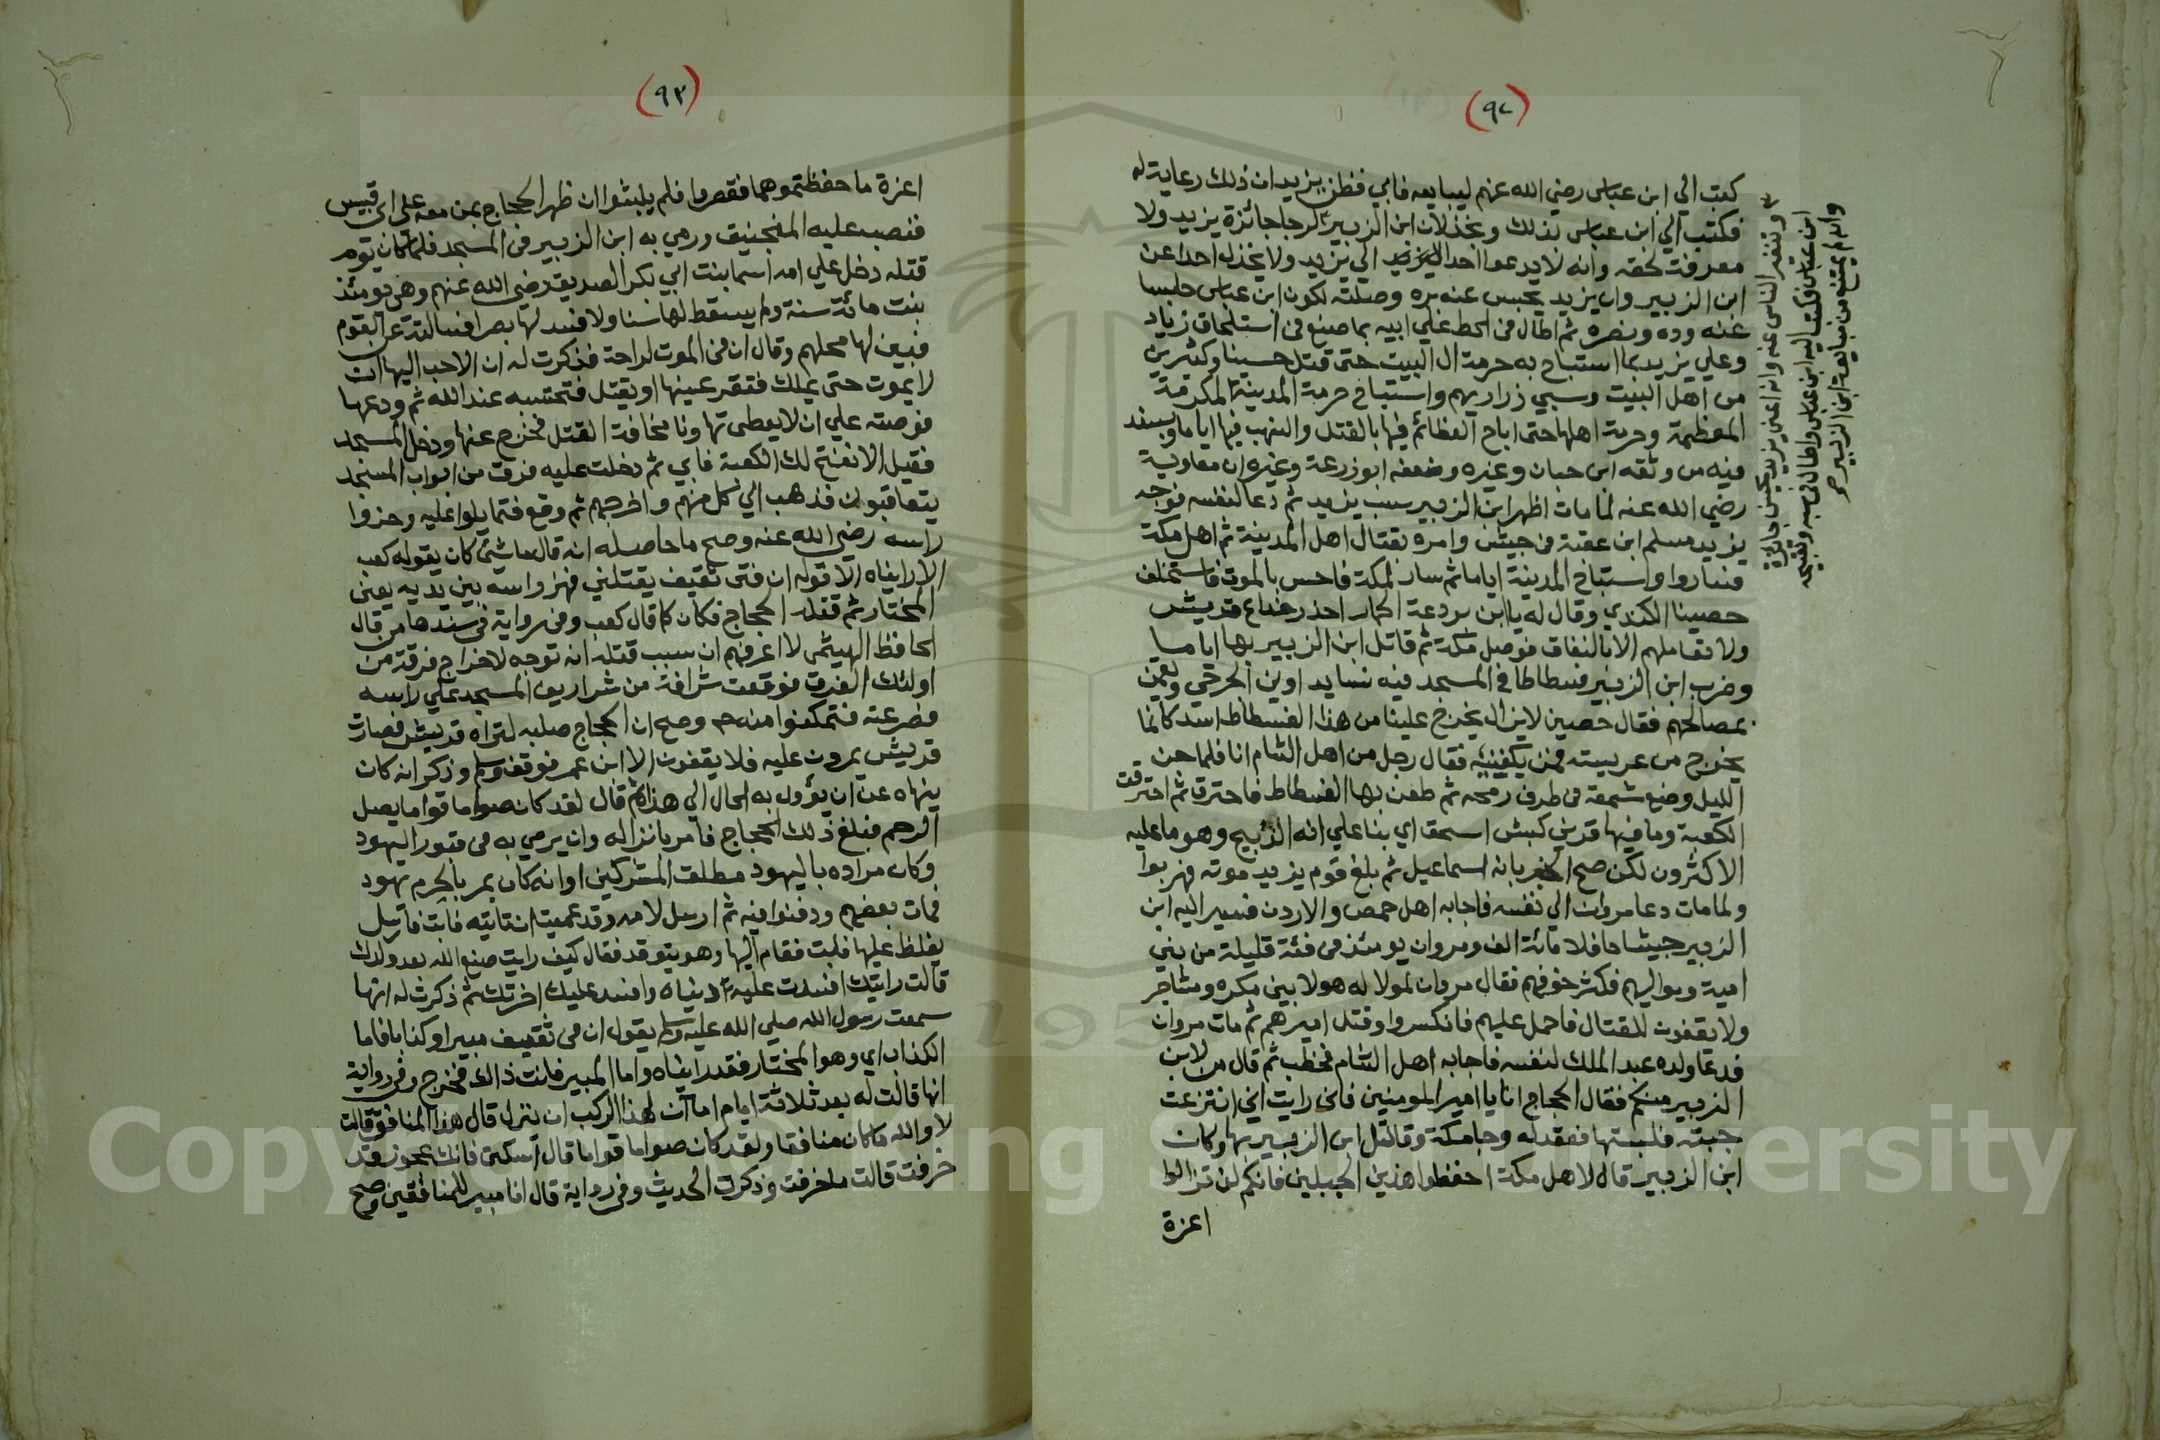 (٩٢)
كتب الي ابن عباس رضي الله عنهم ليبايعه فابي فظن يزيد ان ذلك رعاية له
فكتب الي ابن عباس بذلك وبخذلان ابن الزبير لرجا جائزة يزيد ولا
معرفة لحقه وانه لا يدعوا احدا الي يزيد ولا يخذل احدا عن
ابن الزبير وان يزيد يحبس عنه بره وصلته لكون ابن عباس حابسا
عنه وده ونصره ثم اطال في الحط علي ابيه بما صنع في استلحاق زياد
وعلي يزيد بما استباح به حرمة ال البيت حتى قتل حسينا وكثيرين
من اهل البيت وسبي ذراريهم واستباح حرمة المدينة المكرمة
المعظمة وحرمة اهلها حتى اباح العظائم فيها بالقتل والنهب فيها اياما وبسند
فيه من وثقه ابن حبان وغيره وضعفه ابو زرعة وغيره ان معاوية
رضي الله عنه لما مات اظهر ابن الزبير سب يزيد ثم دعا لنفسه فوجه
يزيد مسلم ابن عقبة في جيش وامره بقتال اهل المدينة ثم اهل مكة
فساروا واستباح المدينة اياما ثم سار لمكة فاحس بالموت فاستخلف
حصينا الكندي وقال له يا ابن بردعة الحمار احذر خداع قريش
ولا تعاملهم الا بالنفاق فوصل مكة ثم قاتل ابن الزبير بها اياما
وضرب ابن الزبير فسطاطا في المسجد فيه نسا يداوين الجرحي ويقمن
بمصالحهم فقال حصين لا يزال يخرج علينا من هذا الفسطاط اسد كانما
يخرج من عرينه فمن يكفينيه فقال رجل من اهل الشام انا فلما جن
الليل وضع شمعة في طرف رمحه ثم طعن بها الفسطاط فاحترق ثم احترقت
الكعبة وما فيها قرني كبش اسحق اي بنا علي انه الذبيح وهو ما عليه
الاكثرون لكن صح الخبر بانه اسماعيل ثم بلغ قوم يزيد موته فهربوا
ولما مات دعا مروان الي نفسه فاجابه اهل حمص والاردن فسير اليه ابن
الزبير جيشا حافلا مائة الف ومروان يومئذ في فئة قليلة من بني
امية ومواليهم فكثر خوفهم فقال مروان لمولا له هولا بين مكره ومشاجر
ولا يقفون للقتال فاحمل عليهم فانكسروا وقتل اميرهم ثم مات مروان
فدعا ولده عبد الملك لنفسه فاجابه اهل الشام فخطب ثم قال من لابن
الزبير منكم فقال الحجاج انا يا امير المومنين فاني رايت اني انتزعت
جبته فلبستها فعقد له وجا مكة وقاتل ابن الزبير بها وكان
ابن الزبير قال لاهل مكة احفظوا هذين الجبلين فانكم لن تزالوا
اعزة
وتنفير الناس عنه وانه اعني يزيد يحسن جائزة
ابن عباس فكتب اليه ابن عباس واطال في سبه وتقبيحه
وانه لم يمتنع من مبايعة ابن الزبير
(٩٣)
اعزة ما حفظتموهما فقصروا فلم يلبثوا ان ظهر الحجاج بمن معه علي ابي قبيس
فنصب عليه المنجنيق ورمي به ابن الزبير في المسجد فلما كان يوم
قتله دخل علي امه اسما بنت ابي بكر الصديق رضي الله عنهم وهي يومئذ
بنت مائة سنة ولم يسقط لها سنا ولا فسد لها بصر فسالته عن القوم
فبين لها محلهم وقال ان في الموت لراحة فذكرت له ان الاحب اليها ان
لا يموت حتى يملك فتقر عينها او يقتل فتحتسبه عند الله ثم ودعها
فوصته علي ان لا يعطى تهاونا مخافة القتل فخرج عنها ودخل المسجد
فقيل الا نفتح لك الكعبة فابي ثم دخلت عليه فرق من ابواب المسجد
يتعاقبون فذهب الي كل منهم واخرجهم ثم وقع فتمايلوا عليه وحزوا
راسه رضي الله عنه وصح ما حاصله انه قال ما شئ كان يقوله كعب
الا رايناه الا قوله ان فتى ثقيف يقتلني فهز راسه بين يديه يعني
المختار ثم قتله الحجاج فكان كما قال كعب وفي رواية في سندها من قال
الحافظ الهيثمي لا اعرفهم ان سبب قتله انه توجه لاخراج فرقة من
اولئك الفرق فوقعت شرافة من شراريف المسجد علي راسه
فصرعته فتمكنوا منه وصح ان الحجاج صلبه لتراه قريش فصارت
قريش يمرون عليه فلا يقفون الا ابن عمر فوقف وسلم وذكر انه كان
ينهاه عن ان يؤول به الحال الي هذا ثم قال لقد كان صواما قواما يصل
الرحم فبلغ ذلك الحجاج فامر بانزاله وان يرمي به في قبور اليهود
وكان مراده باليهود مطلق المشركين او انه كان يمر بالحرم يهود
فمات بعضهم ودفنوا فيه ثم ارسل لامه وقد عميت ان تاتيه فابت فارسل
يغلظ عليها فابت فقام اليها وهو يتوقد فقال كيف رايت صنع الله بعدو الله
قالت رايتك افسدت عليه دنياه وافسد عليك اخرتك ثم ذكرت له انها
سمعت رسول الله صلي الله عليه وسلم يقول ان في ثقيف مبيرا وكذابا فاما
الكذاب اي وهو المختار فقد رايناه واما المبير فانت ذاك فخرج وفي رواية
انها قالت له بعد ثلاثة ايام اما آن لهذا الركب ان ينزل قال هذا المنافق قالت
لا والله ما كان منافقا ولقد كان صواما قواما قال اسكتي فانك عجوز قد
خرفت قالت ما خرفت وذكرت الحديث وفي رواية قال انا مبير للمنافقين وصح
Copyright © King Saud University
1957